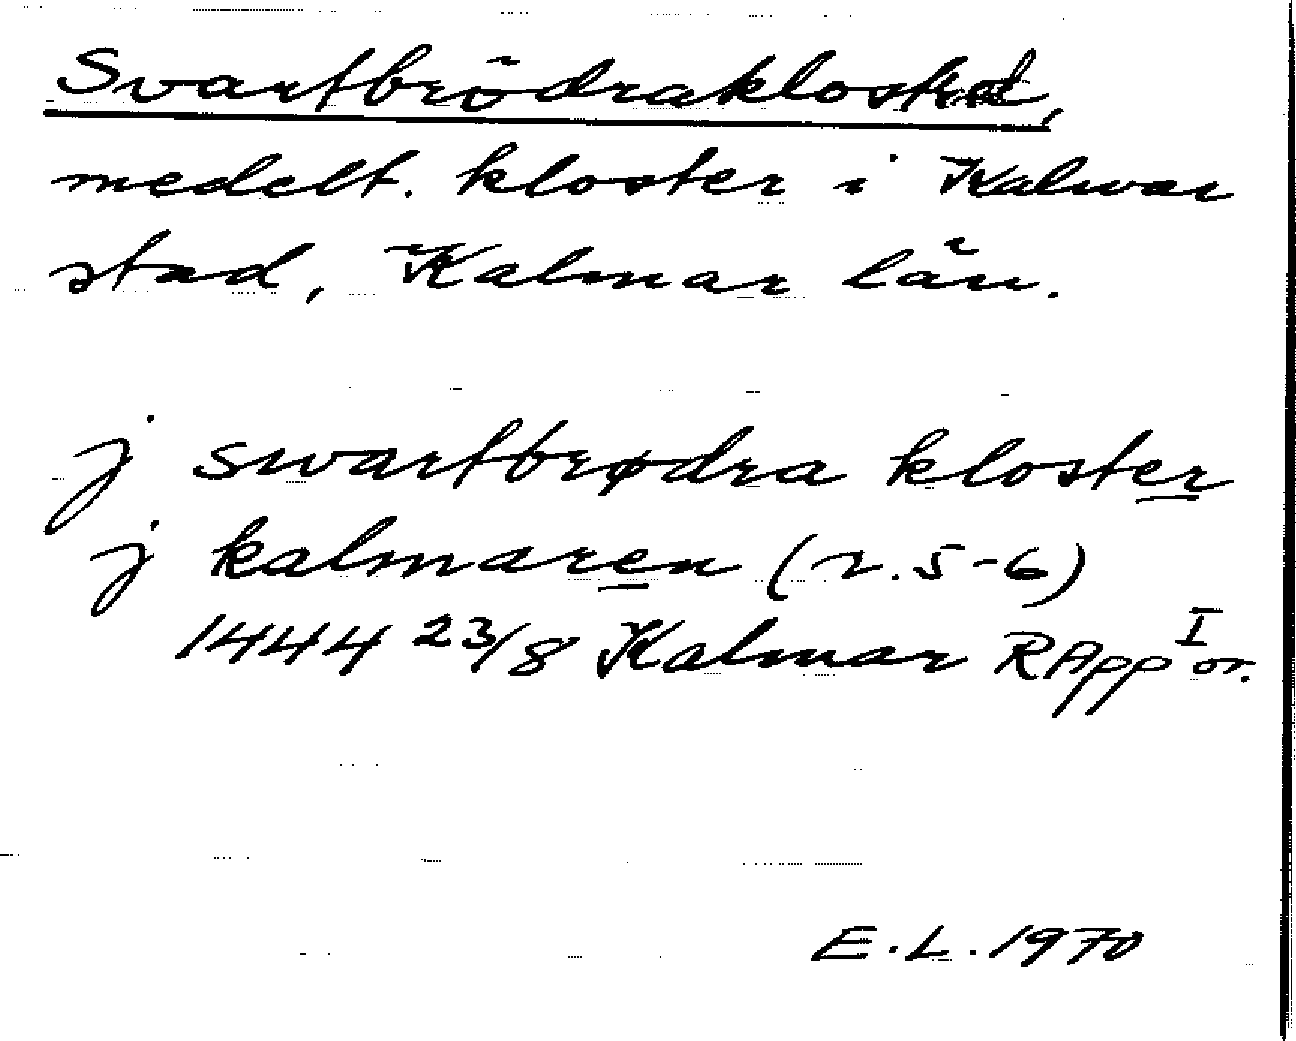 Svartbrödraklostret,
medelt. kloster i Kalmar
stad, Kalmar län.
j swartbrødra kloster
j kalmaren (r. 5-6)
1444 23/8 Kalmar RApp I or.
E.L. 1970